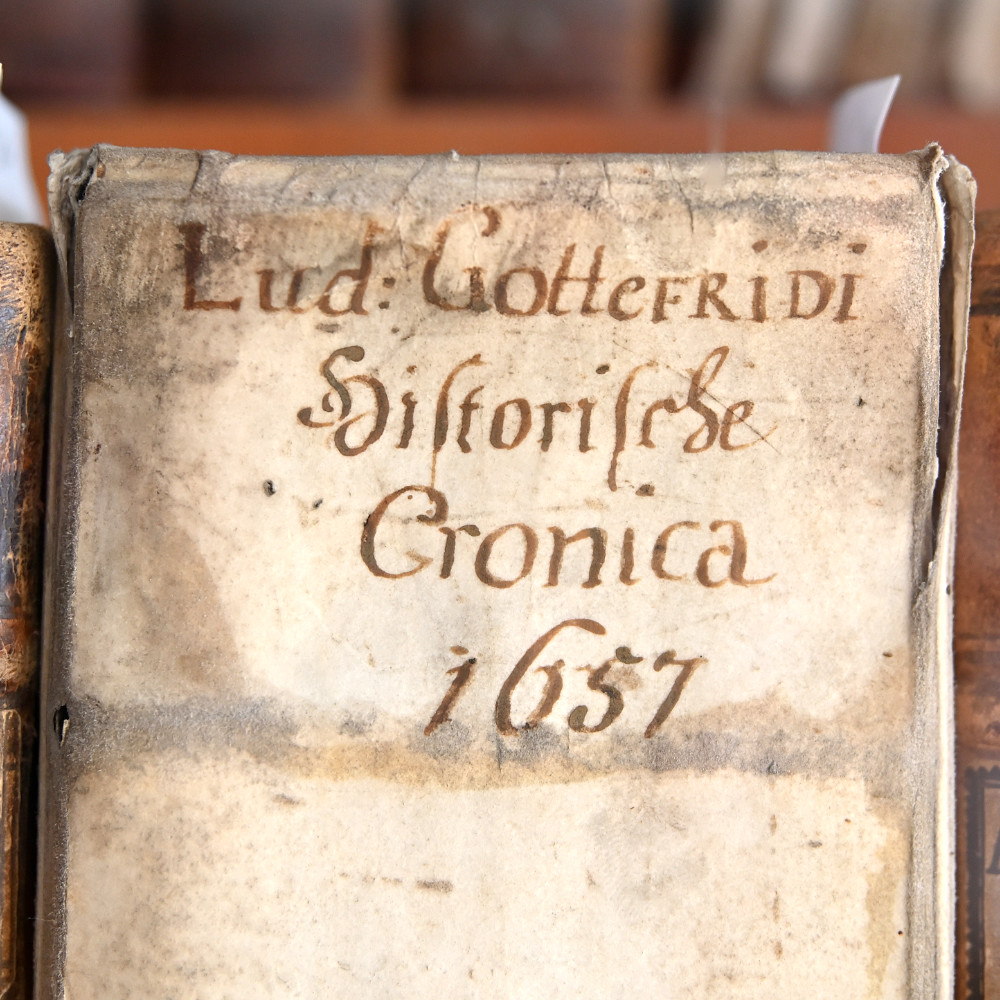 Lud: GotteFRiDi
Hiſtoriſche
Cronica
1657